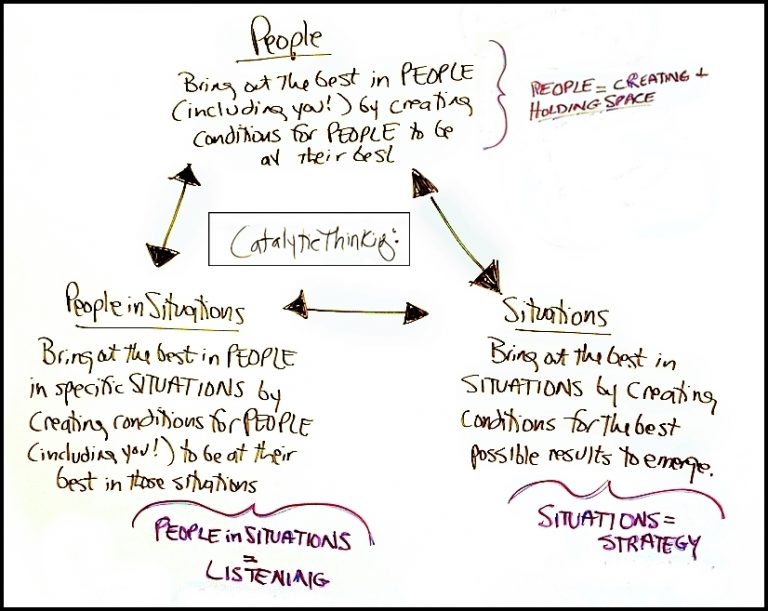 People
Bring out the best in PEOPLE
(including you!) by creating
conditions for PEOPLE to be
at their best
PEOPLE = CREATING +
HOLDING SPACE
Catalytic Thinking:
People in Situations
Bring out the best in PEOPLE
in specific SITUATIONS by
Creating conditions for PEOPLE
(including you!) to be at their
best in those situations
PEOPLE in SITUATIONS
=
LISTENING
Situations
Bring out the best in
SITUATIONS by Creating
Conditions for the best
possible results to emerge.
SITUATIONS =
STRATEGY